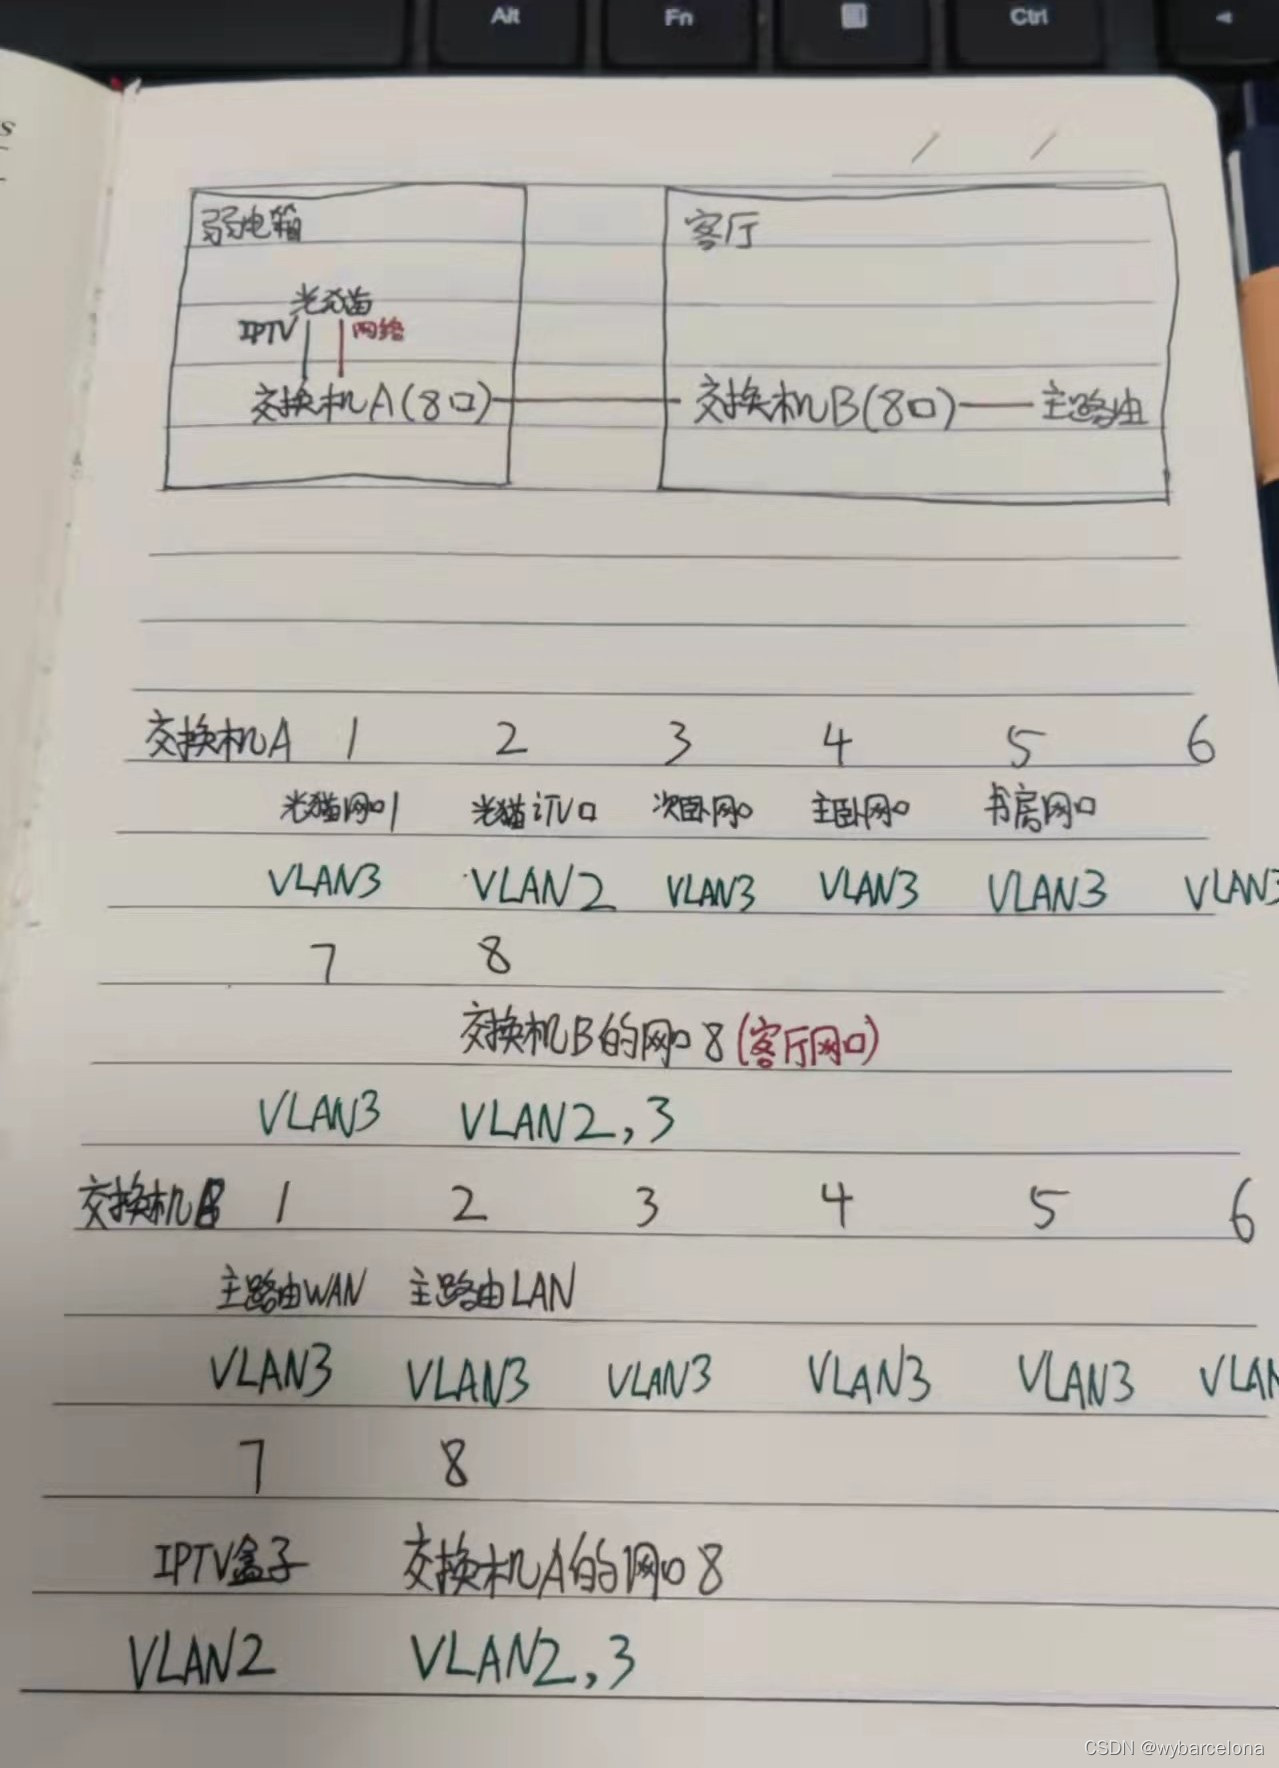 Alt Fn Ctrl
s
弱电箱 客厅
光猫
IPTV 网络
交换机A(8口) 交换机B(8口) 主路由
交换机A 1 2 3 4 5 6
光猫网口1 光猫iTV口 次卧网口 主卧网口 书房网口
VLAN3 VLAN2 VLAN3 VLAN3 VLAN3 VLAN3
7 8
交换机B的网口8(客厅网口)
VLAN3 VLAN2,3
交换机B 1 2 3 4 5 6
主路由WAN 主路由LAN
VLAN3 VLAN3 VLAN3 VLAN3 VLAN3 VLAN
7 8
IPTV盒子 交换机A的网口8
VLAN2 VLAN2,3
CSDN @wybarcelona